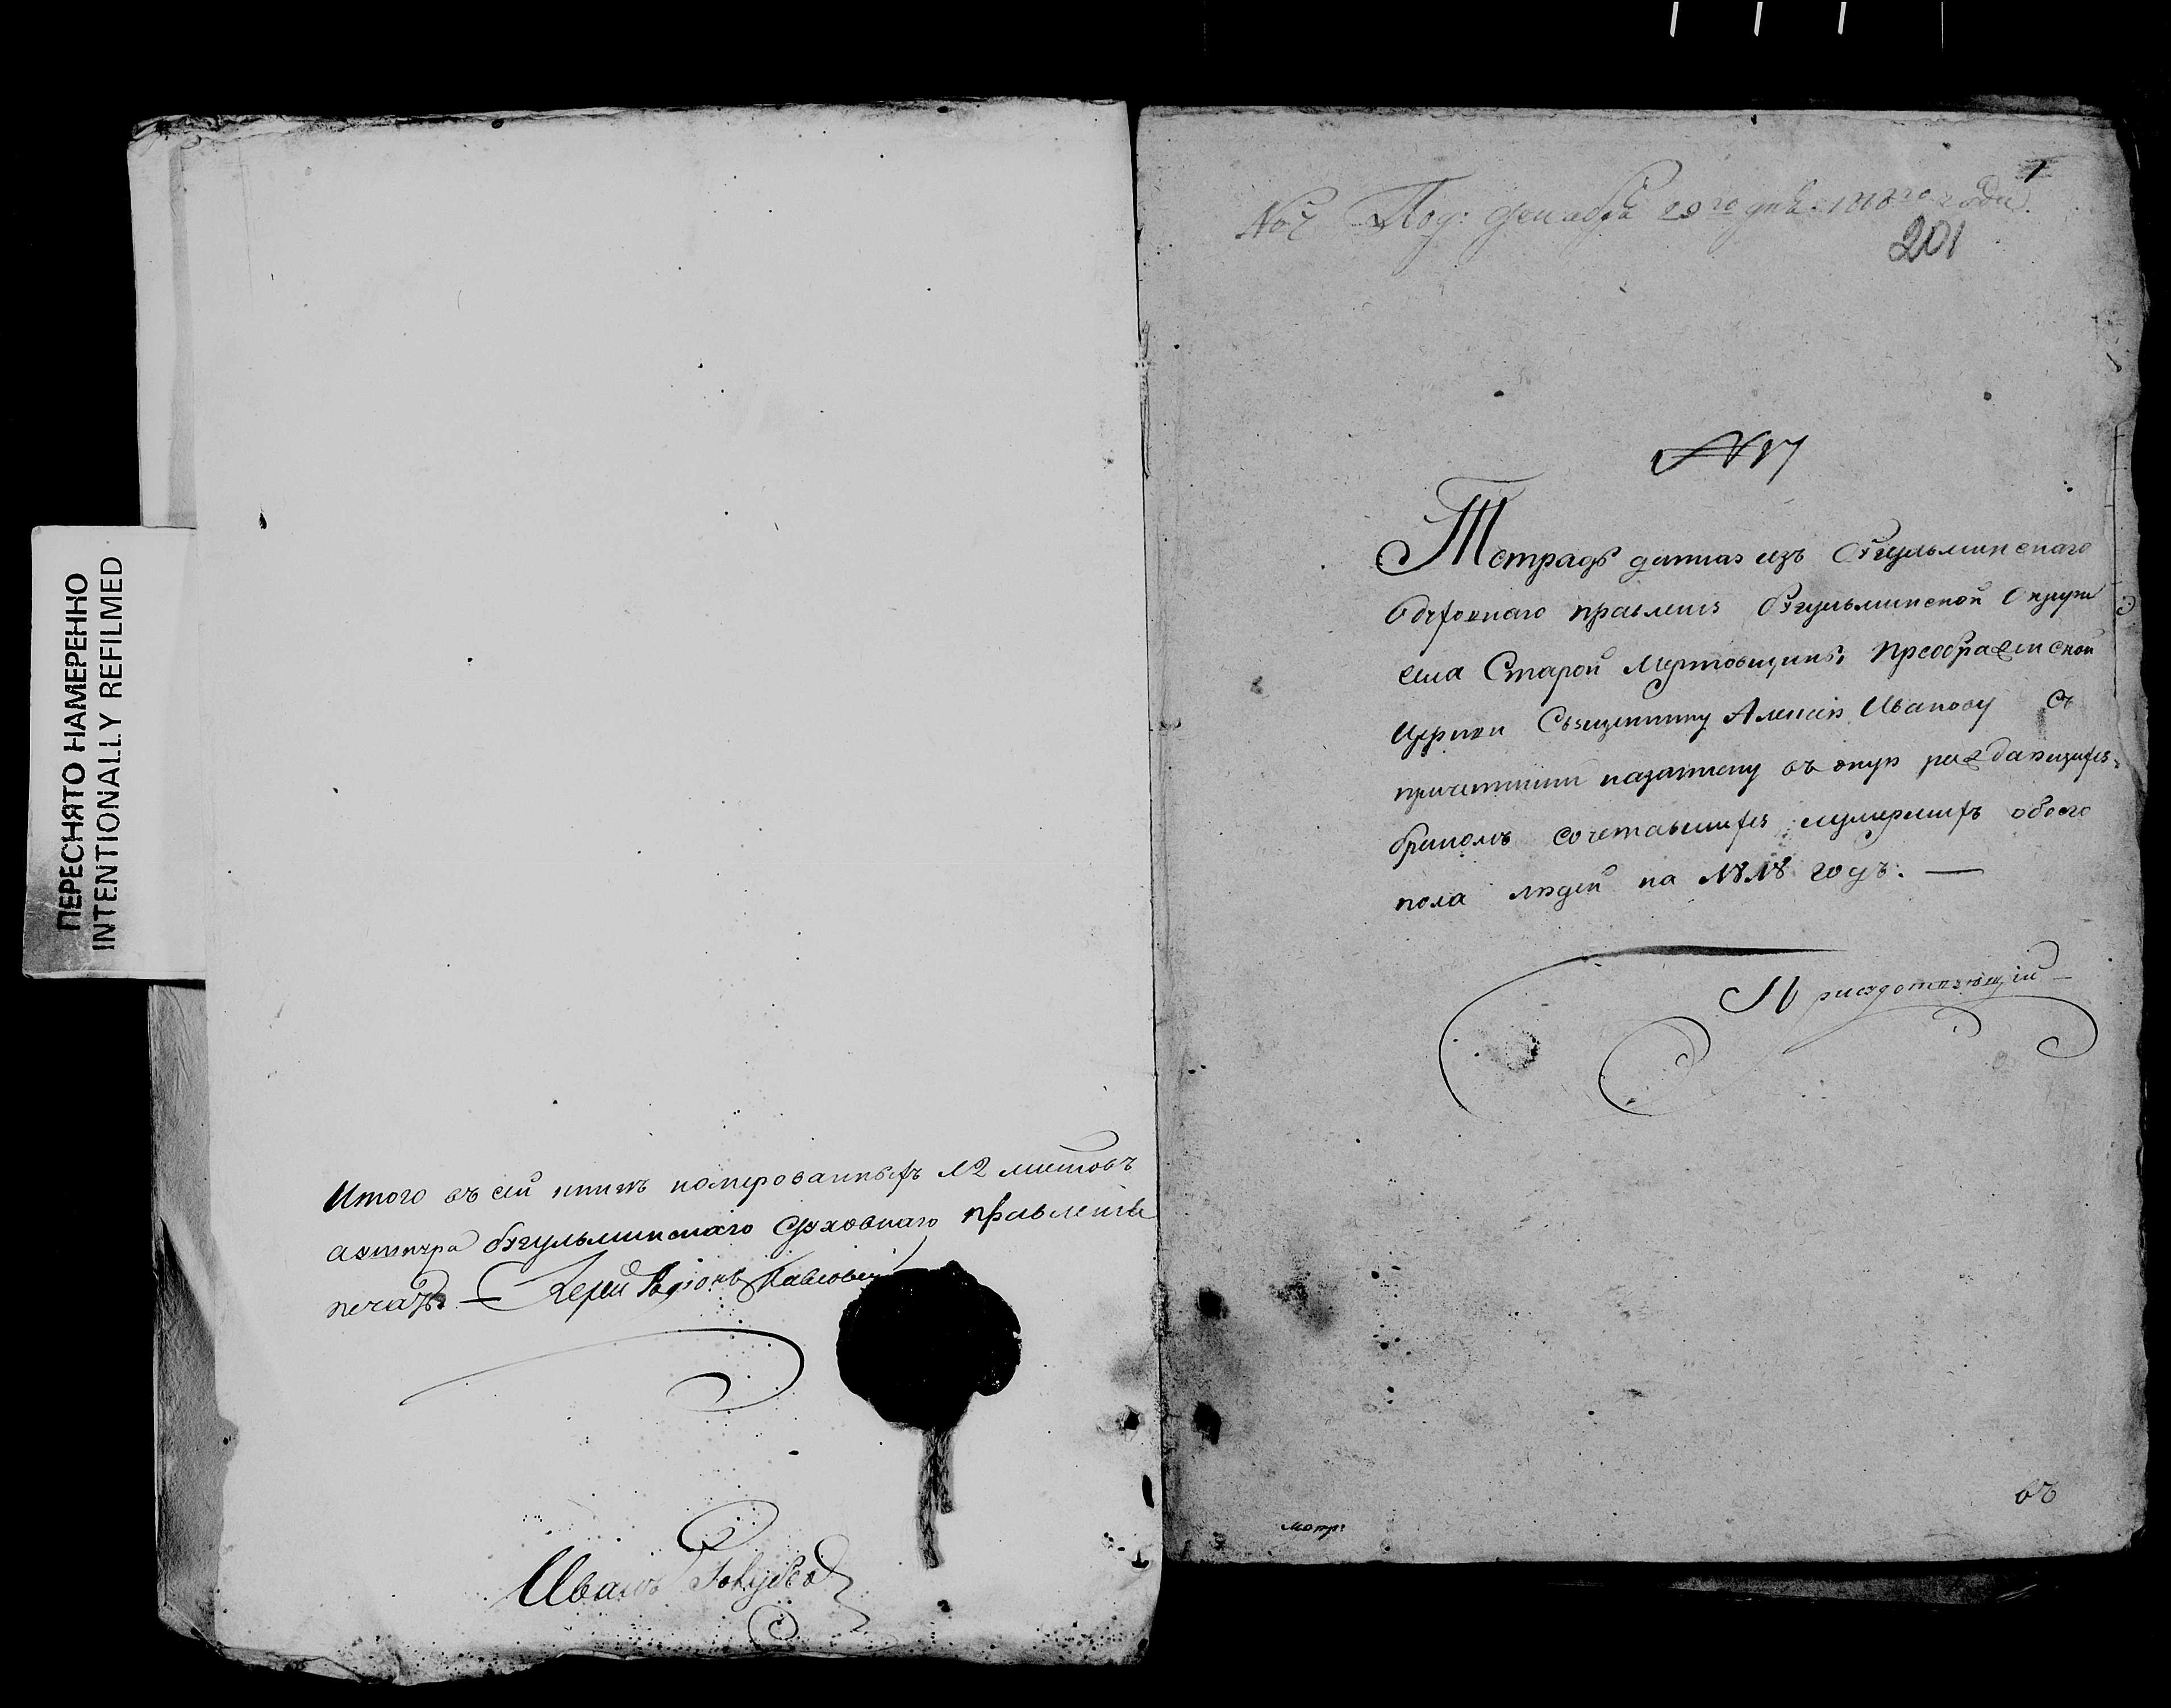 ПЕРЕСНЯТО НАМЕРЕННО
INTENTIONALLY REFILMED
Итого въ сей книгѣ номерованныхъ 12 листовъ
бугульминскаго духовнаго правленія
печать. — Іерей Родіонъ Павловъ
Иванъ Голубевъ
1
Под: декабря 29го дня 1818го года.
201
№ 17
Тетрадь данная изъ Бугульминскаго
духовнаго правленія Бугульминской округи
села Старой Мертовщины Преображенской
церкви Священнику Алексію Иванову съ
причетники на записку въ оную раждающихся
бракомъ сочетавшихся иумершихъ обоего
пола людей на 1818 годъ. —
въ
метр: